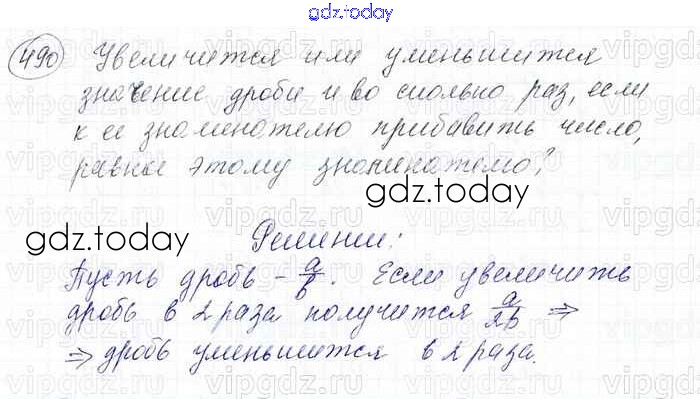 gdz.today
490 Увеличится или уменьшится
значение дроби и во сколько раз, если
к ее знаменателю прибавить число,
равное этому знаменателю?
gdz.today
gdz.today
Решение:
Пусть дробь - a/b. Если увеличить
дробь в 2 раза получится a/2b ⇒
⇒ дробь уменьшится в 2 раза.